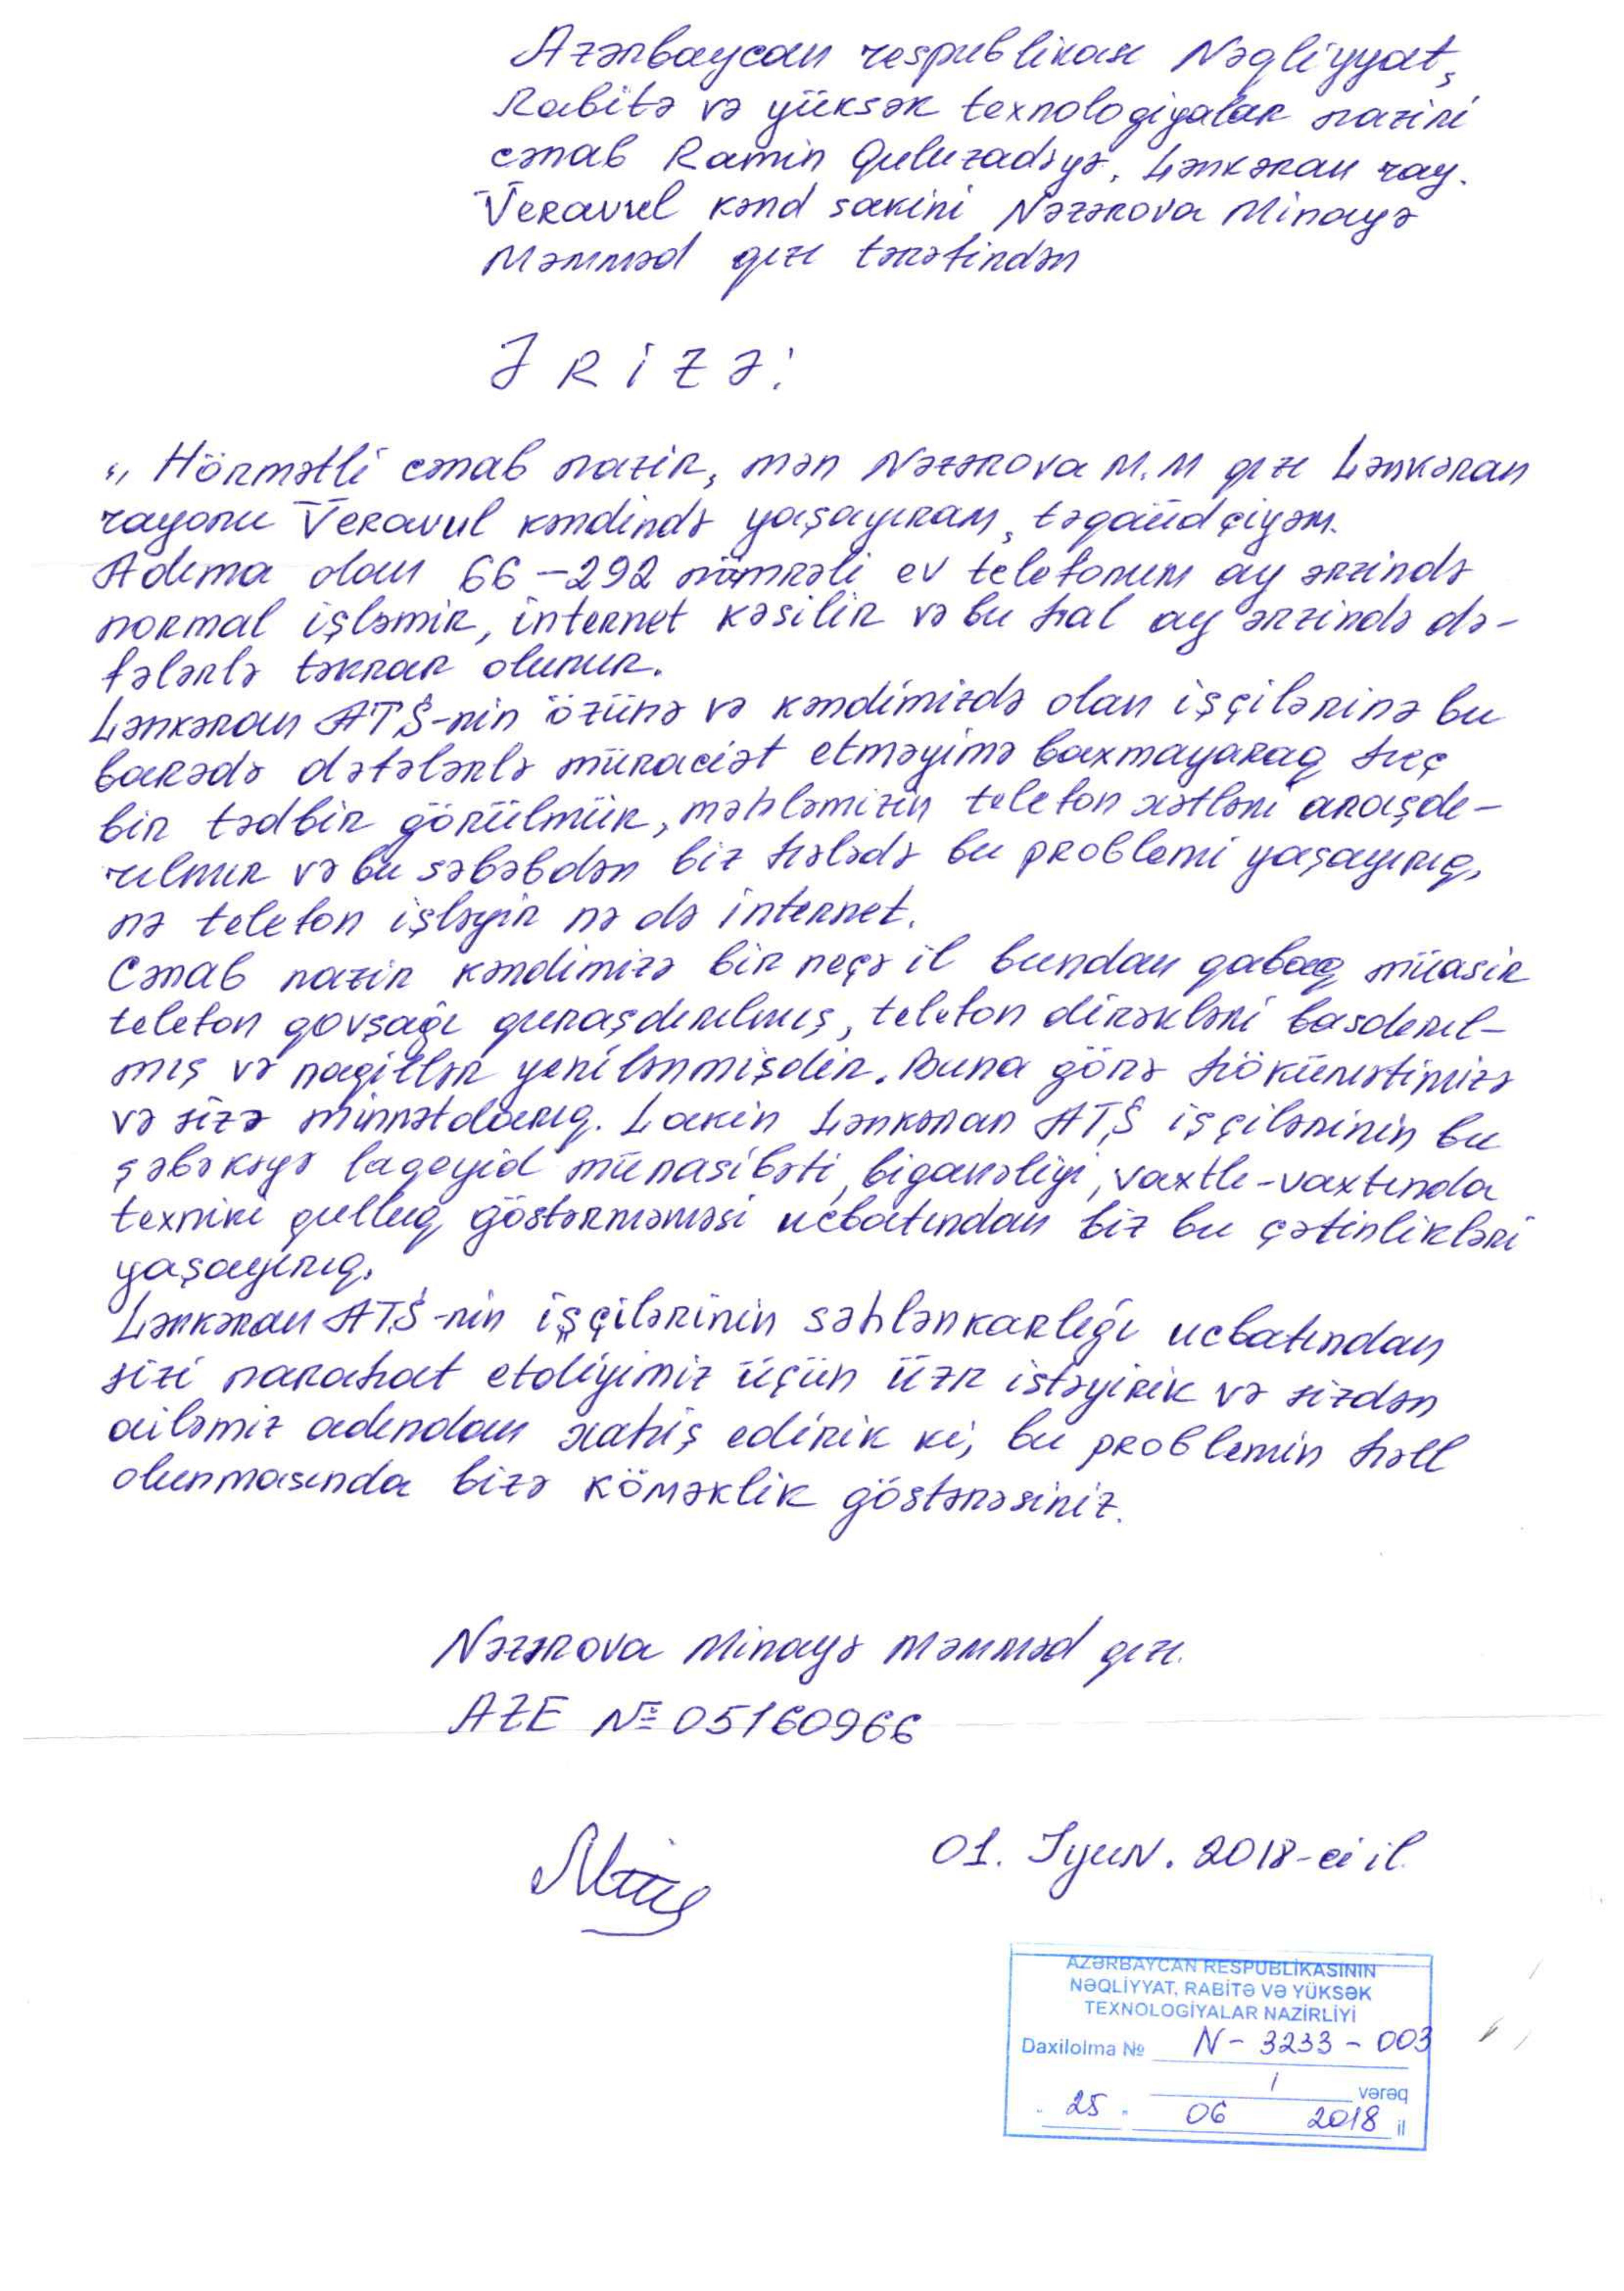 Azərbaycan respublikası Nəqliyyat,
Rabitə və yüksək texnologiyalar naziri
cənab Ramin Quluzadəyə, Lənkəran ray.
Veravul kənd sakini Nəzərova Minayə
Məmməd qızı tərəfindən
ƏRİZƏ:
„ Hörmətli cənab nazir, mən Nəzərova M.M qızı Lənkəran
rayonu Veravul kəndində yaşayıram, təqaüdçiyəm.
Adıma olan 66-292 nömrəli ev telefonum ay ərzində
normal işləmir, internet kəsilir və bu hal ay ərzində də-
fələrlə təkrar olunur.
Lənkəran ATŞ-nin özünə və kəndimizdə olan işçilərinə bu
barədə dəfələrlə müraciət etməyimə baxmayaraq heç
bir tədbir görülmür, məhləmizin telefon xətləri araşdı-
rılmır və bu səbəbdən biz hələdə bu problemi yaşayırıq,
nə telefon işləyir nə də internet.
Cənab nazir kəndimizə bir neçə il bundan qabaq müasir
telefon qovşağı quraşdırılmış, telefon dirəkləri basdırıl-
mış və nagillər yenilənmişdir. Buna görə hökümətimizə
və sizə minnətdarıq. Lakin Lənkəran ATŞ işçilərinin bu
şəbəkəyə laqeyid münasibəti, biganəliyi, vaxtlı-vaxtında
texniki qulluq göstərməməsi ucbatından biz bu çətinlikləri
yaşayırıq.
Lənkəran ATŞ-nin işçilərinin səhlənkarlığı ucbatından
sizi narahat etdiyimiz üçün üzr istəyirik və sizdən
ailəmiz adından xahiş edirik ki, bu problemin həll
olunmasında bizə köməklik göstərəsiniz.
Nəzərova Minayə Məmməd qızı.
AZE № 05160966
01. İyun. 2018-ci il.
AZƏRBAYCAN RESPUBLİKASININ
NƏQLİYYAT, RABİTƏ VƏ YÜKSƏK
TEXNOLOGİYALAR NAZİRLİYİ
Daxilolma № N-3233-003
1 vərəq
" 25 " 06 2018 il